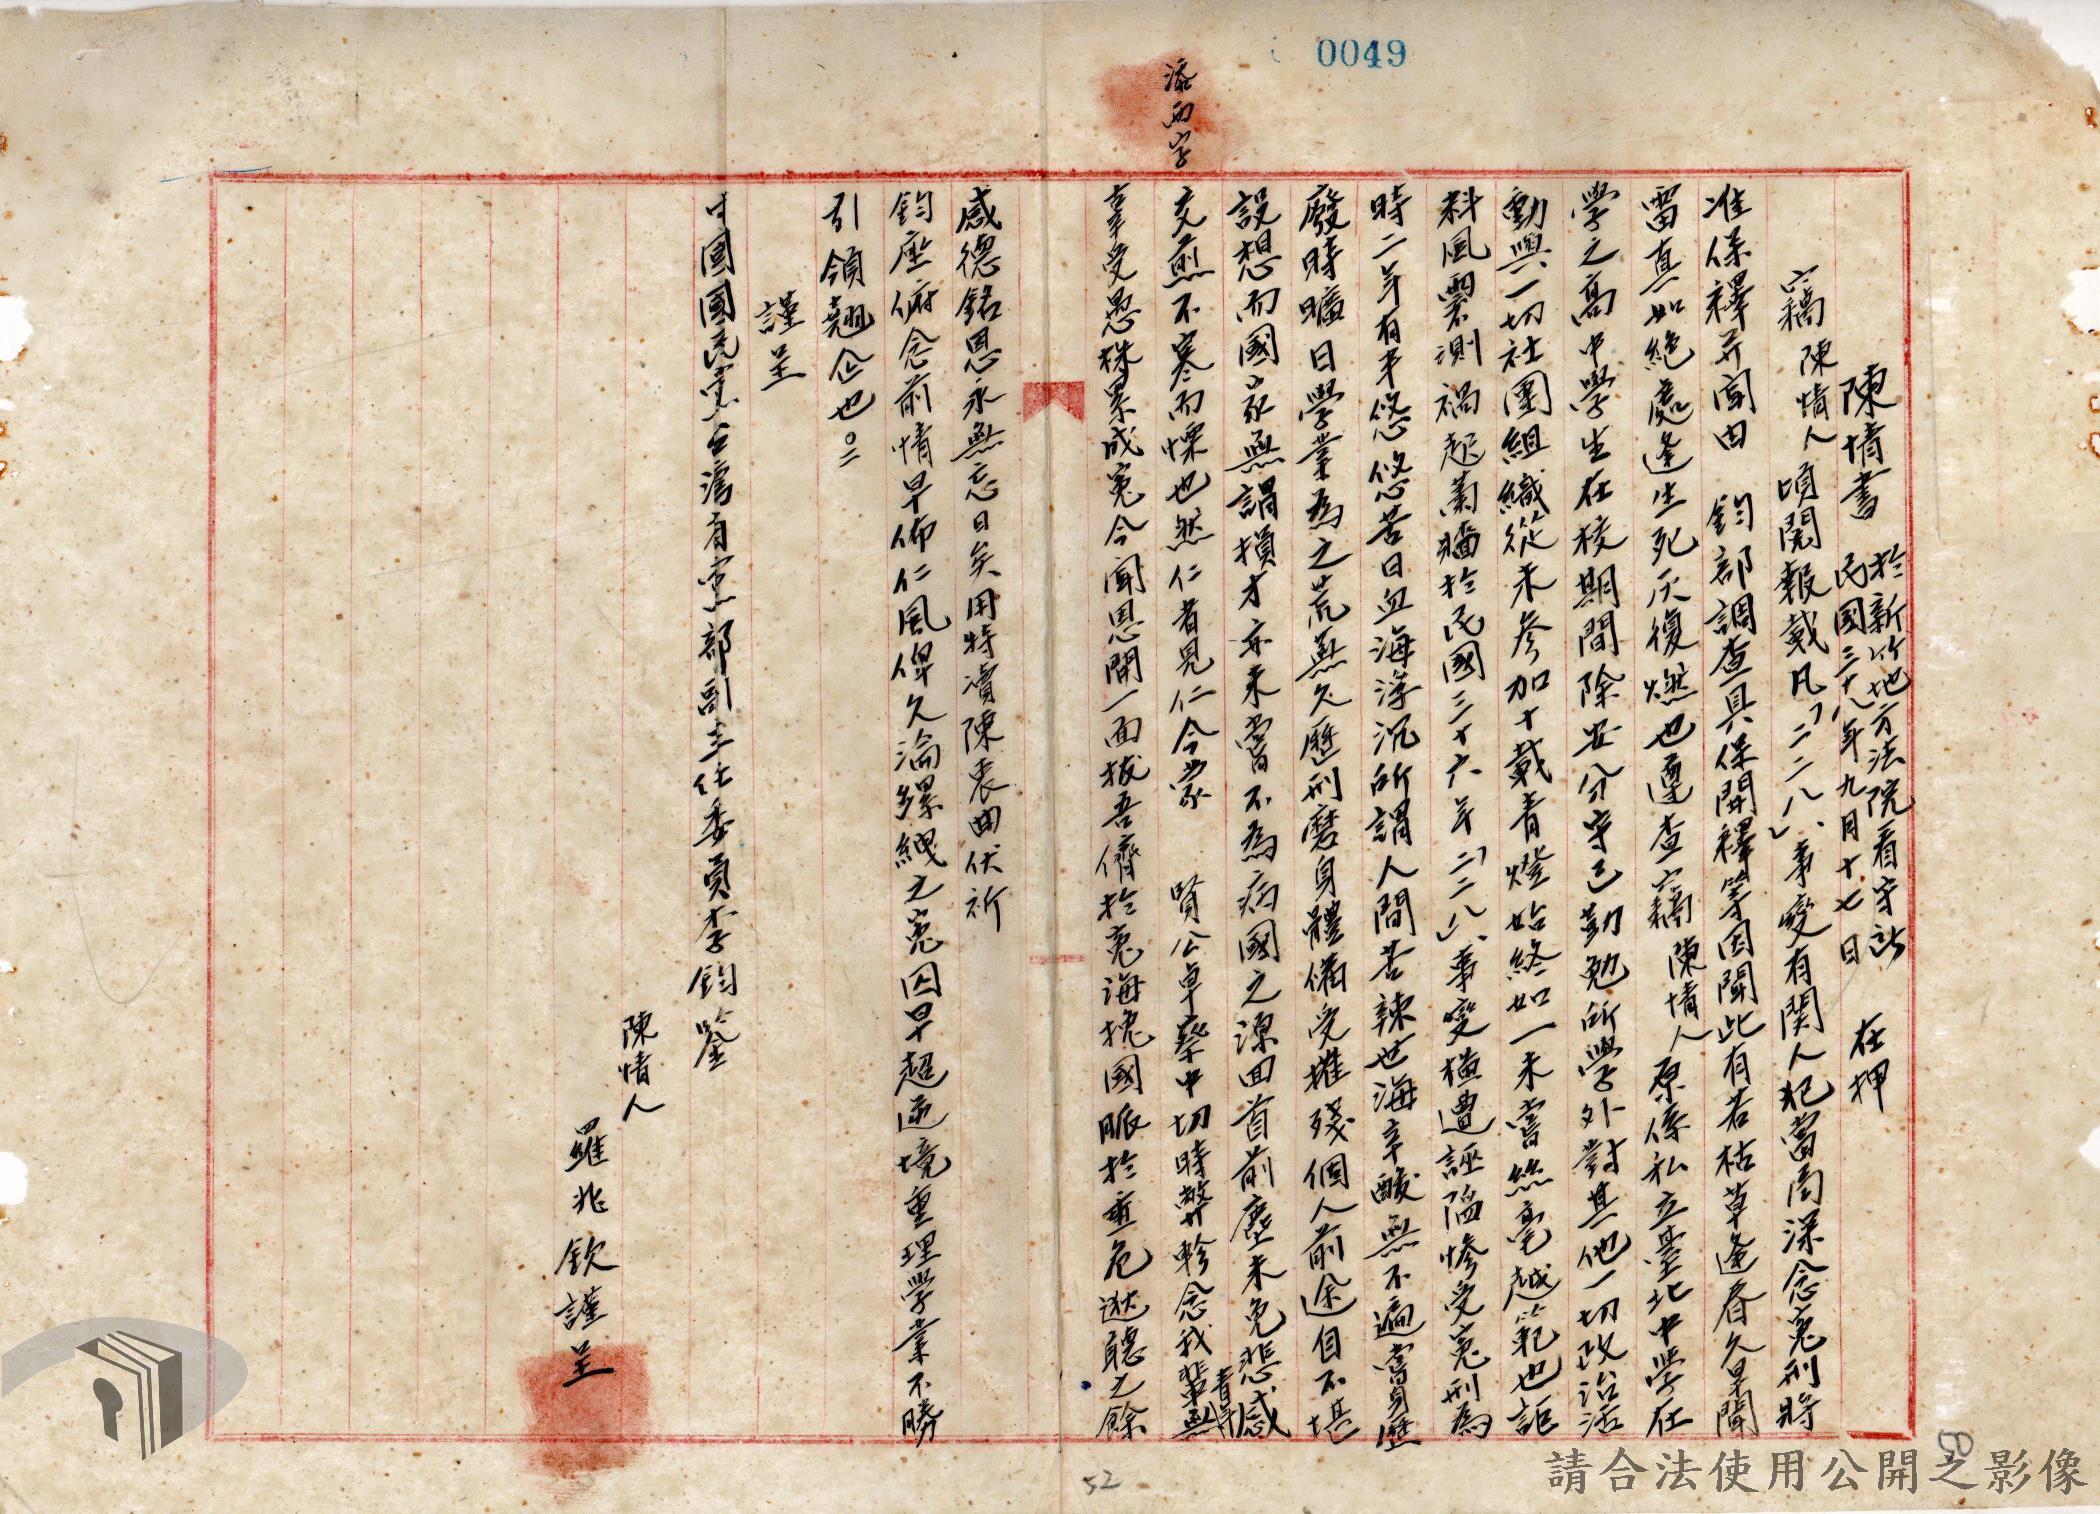 0049
添兩字
陳情書 於新竹地方法院看守所 在押
民國三十八年九月十七日
竊陳情人頃閱報載凡「二二八」事變有関人犯當局深念冤刑將
准保釋并聞由 鈞部調查具保開釋等因聞此有若枯草逢春久旱聞
雷真如絕處逢生死灰復燃也遵查竊陳情人原係私立臺北中學在
學之高中學生在校期間除安分守己勤勉所學外對其他一切政治活
動與一切社團組織從未參加十載青燈始終如一未嘗絲毫越範也詎
料風雲不測禍起蕭牆於民國三十六年「二二八」事變橫遭誣陷慘受冤刑為
時二年有半悠悠苦日血海浮沉所謂人間苦辣世海辛酸無不遍嘗身歷
廢時曠日學業為之荒蕪久歷刑磨身體備受摧殘個人前途自不堪
設想而國家無謂損才亦未嘗不為病國之源回首前塵未免悲感
交煎不寒而慄也然仁者見仁今蒙 賢公卓蔡中切時弊軫念我輩無
青年
辜受愚株累成冤今聞恩開一面拔吾儕於冤海挽國脈於垂危逖聽之餘
感德銘恩永無忘日矣用特瀆陳衷曲伏祈
鈞座俯念前情早佈仁風俾久淪縲絏之冤囚早超逆境重理學業不勝
引領翹企也
謹呈
中國國民黨台灣省黨部副主任委員李鈞鑒
陳情人
羅兆欽謹呈
52
50
請合法使用公開之影像